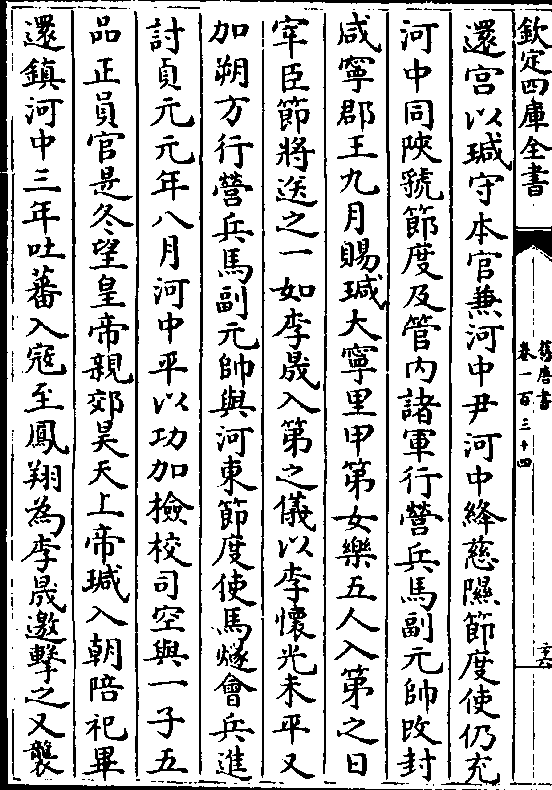 欽定四庫全書
舊唐書
卷一百三十四
還宮以瑊守本官兼河中尹河中絳慈隰節度使仍充
河中同陝虢節度及管內諸軍行營兵馬副元帥改封
咸寧郡王九月賜瑊大寧里甲第女樂五人入第之日
宰臣節將送之一如李晟入第之儀以李懷光未平又
加朔方行營兵馬副元帥與河東節度使馬燧會兵進
討貞元元年八月河中平以功加檢校司空與一子五
品正員官是冬望皇帝親郊昊天上帝瑊入朝陪祀畢
還鎮河中三年吐蕃入寇至鳳翔為李晟邀擊之又襲